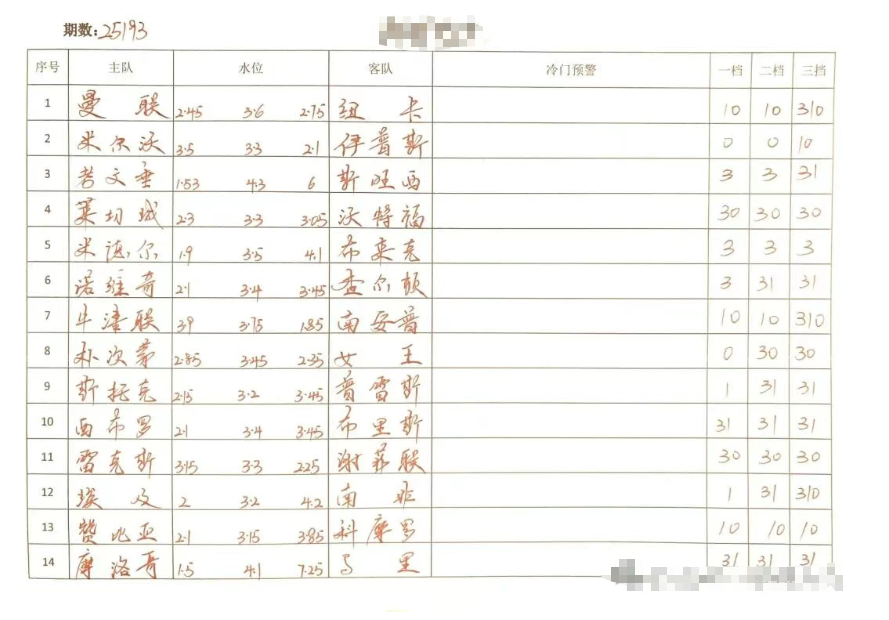 期数: 25193
序号 主队 水位 客队 冷门预警 一档 二档 三挡
1 曼联 2.45 3.6 2.75 纽卡 10 10 310
2 米尔沃 3.5 3.3 2.1 伊普斯 0 0 10
3 考文垂 1.53 4.3 6 斯旺西 3 3 31
4 莱切城 2.3 3.3 3.05 沃特福 30 30 30
5 米德尔 1.9 3.5 4.1 布莱克 3 3 3
6 诺维奇 2.1 3.4 3.45 查尔顿 3 31 31
7 牛津联 3.9 3.75 1.85 南安普 10 10 310
8 朴次茅 2.85 3.45 2.35 女王 0 30 30
9 斯托克 2.15 3.2 3.45 普雷斯 1 31 31
10 西布罗 2.1 3.4 3.45 布里斯 31 31 31
11 雷克斯 3.15 3.3 2.25 谢菲联 30 30 30
12 埃及 2 3.2 4.2 南非 1 31 310
13 赞比亚 2.1 3.15 3.85 科摩罗 10 10 10
14 摩洛哥 1.5 4.1 7.25 马里 31 31 31